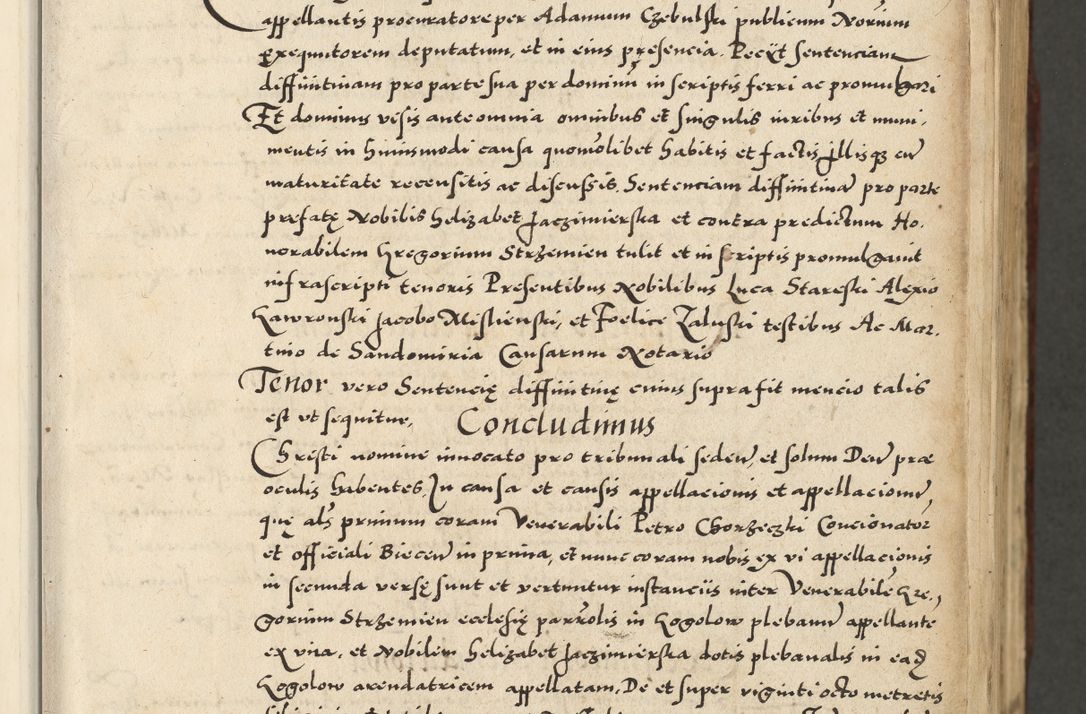 appellantis procuratore per Adamum Czebulski publicum Norium
Exequutorem deputatum, et in eius presencia. Peciit sentenciam
diffinitivam pro parte sua per dominū in scriptis ferri ac promulgari
Et dominus visis ante omnia omnibus et singulis iuribus et muni-
mentis in huiusmodi causa quomolibet habitis et factis Illisq3 cū
maturitate recensitis ac discussis. Sentenciam diffinitivā pro parte
prefatę Nobilis helizabet Jaczimierska et contra predictum Ho-
norabilem Gregorium Strzemien tulit et in scriptis promulgavit
infrascripti tenoris Presentibus Nobilibus Luca Stareski Alexio
Gawronski Jacobo Mislienski, et Foelice Zaluski testibus Ac Mar-
tino de Sandomiria Causarum Notario
Tenor vero Sentencię diffinitivę cuius supra fit mencio talis
est ut sequitur, Concludimus
Christi nomine invocato pro tribunali seden, et solum Deū præ
oculis habentes, In causa et causis appellacionis et appellacionū,
quę als primum coram Venerabili Petro Chorzeczki Concionator
et officiali Biecen in prima, et nunc coram nobis ex vi appellacionis
in secunda versę sunt et vertuntur instanciis inter Venerabilē Gre-
gorium Strzemien ecclesię parrolis in Gogolow plebanū appellante
ex una, et Nobilem helizabet Jaczimierska dotis plebanalis in ead
Gogolow arendatricem appellatam, De et super viginti octo metretis